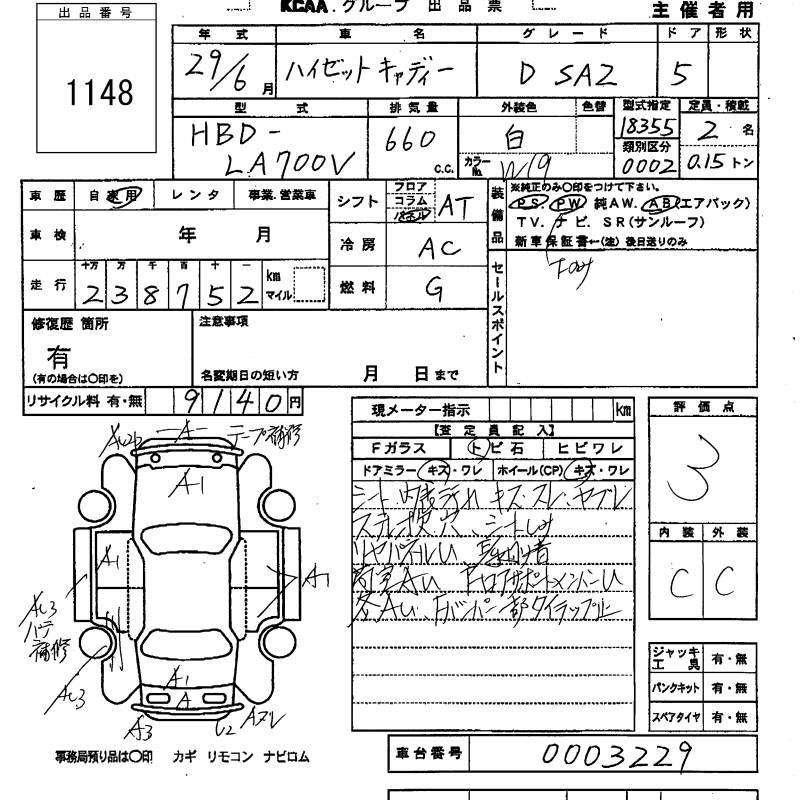 KCAA. グループ 出品票
主催者用
出品番号
1148
年式 車名 グレード ドア 形状
29/6月 ハイゼットキャディー D SA2 5
型式 排気量 外装色 色替 型式指定 定員・積載
HBD-LA700V 660 c.c. 白 18355 2名
カラーNo. W19 類別区分 0002 0.15トン
車歴 自家用 レンタ 事業.営業車
シフト フロア コラム パネル AT
装備品 ※純正のみ〇印をつけて下さい。
PS PW 純AW. AB(エアバック)
TV. ナビ. SR(サンルーフ)
新車保証書←(注)後日送りのみ
車検 年 月
冷房 AC
走行 十万 万 千 百 十 一
238752 km マイル
燃料 G
セールスポイント
修復歴 箇所
有
(有の場合は〇印を)
注意事項
名変期日の短い方 月 日まで
リサイクル料 有・無 9140円
現メーター指示 km
【査定員記入】
Fガラス トビ石 ヒビワレ
ドアミラー キズ・ワレ ホイール(CP) キズ・ワレ
シート、内装汚れ キズ・スレ・ヤブレ
リヤパネルU
荷室AU FロアサポートメンバーU
各AU、Fバンパー一部タイラップ止
評価点
3
内装 外装
C C
ジャッキ 工具 有・無
パンクキット 有・無
スペアタイヤ 有・無
A テープ補修
A1
A1 A1
AU3 パテ補修
AU3
A1
A
A3 U2 Aスレ
事務局預り品は〇印 カギ リモコン ナビロム
車台番号 0003229